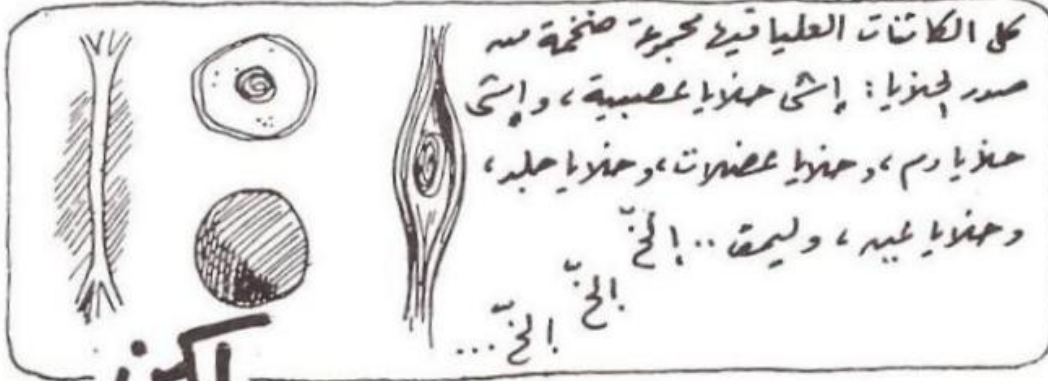 كل الكائنات العليا فيها مجموعة ضخمة من
صور الخلايا: إشى خلايا عصبية، وإشى
خلايا دم، وخلايا عضلات، وخلايا جلد،
وخلايا عين، وليمف .. إلخّ
إلخّ
إلخّ...
لكن